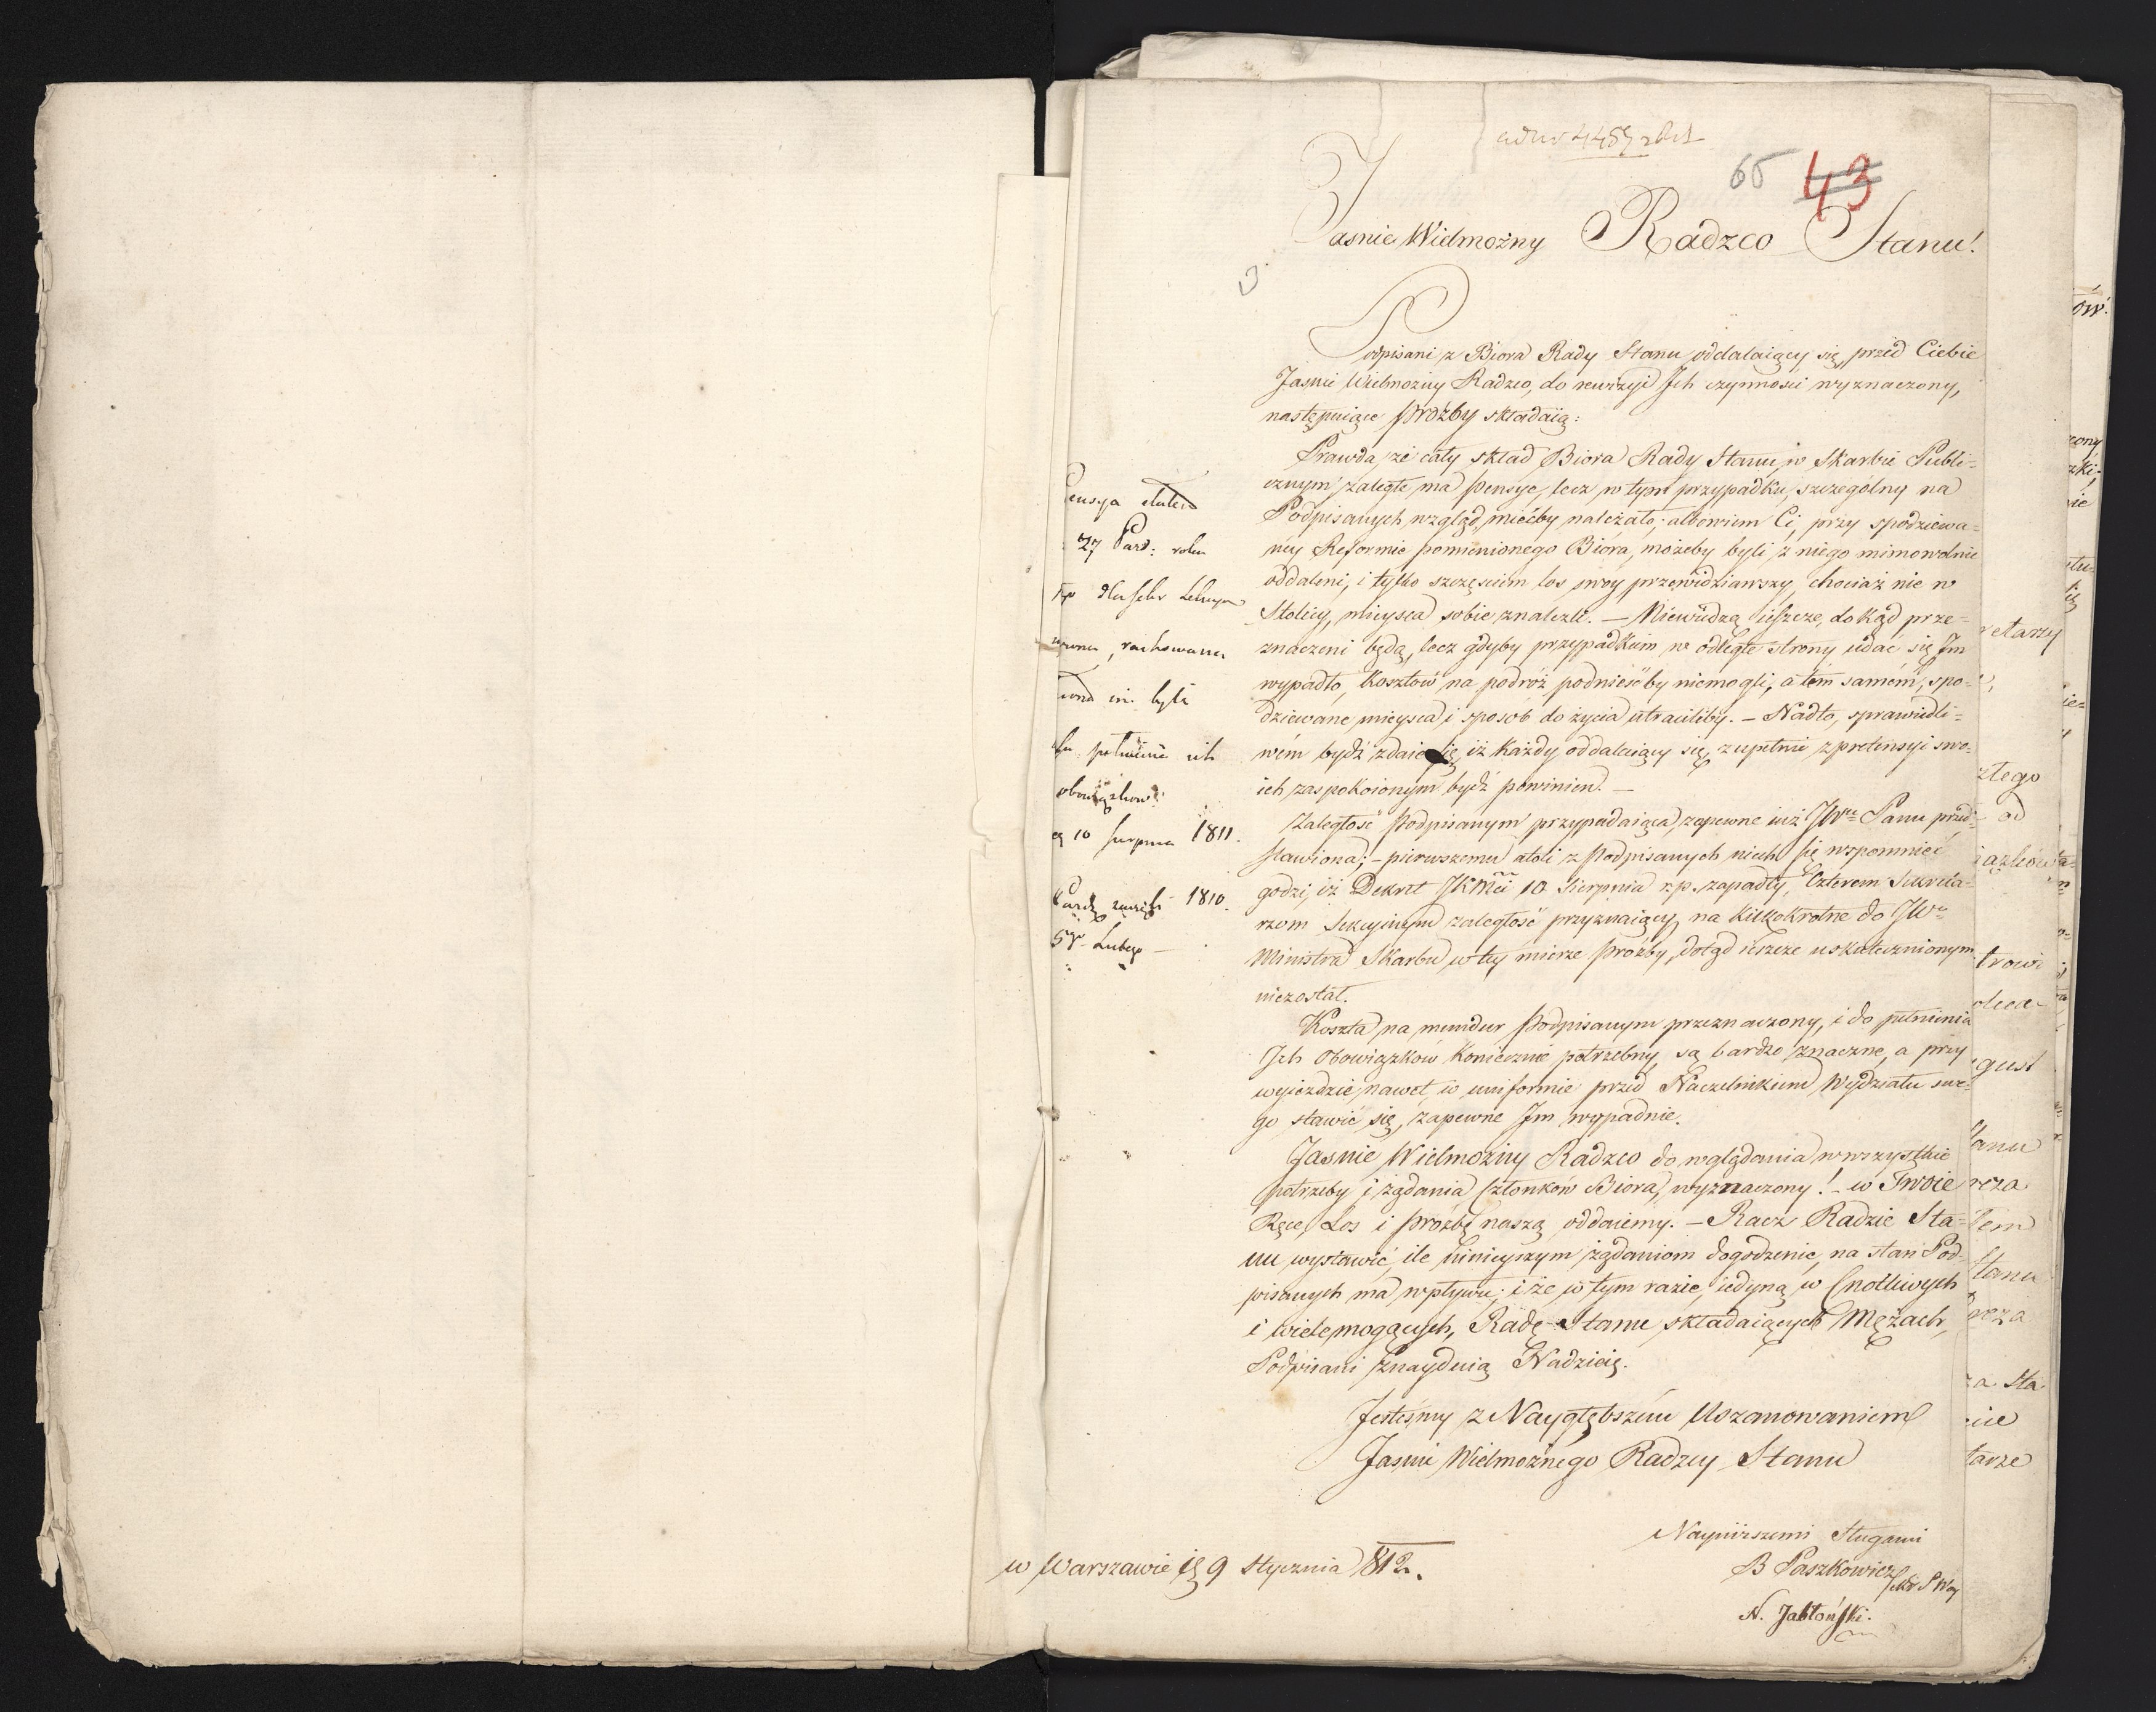 65 43
Jasnie Wielmożny Radzco Stanu!
3.
Podpisani z Biora Rady Stanu oddalaiący się, przed Ciebie
Jasnie Wielmożny Radzco, do rewizyi Ich czynnosci wyznaczony,
następuiące prozby składaią:
Prawda, że cały skład Biora Rady Stanu, w Skarbie Publi=
cznym zaległe ma pensye, lecz w tym przypadku, szczegolny na
Podpisanych wzgląd miećby należało; albowiem Ci, przy spodziewa=
ney Reformie pomienionego Biora, możeby byli z niego mimowolnie
oddaleni, i tylko szczęsciem los swoy przewidziawszy, chociaż nie w
Stolicy, mieysca sobie znalezli. — Niewiedzą ieszcze, dokąd prze=
znaczeni będą, lecz gdyby przypadkiem w odległe strony udać się Im
wypadło, kosztow na podróż podnieść by niemogli, a tem samem, spo=
dziewane mieysca i sposob do życia utraciliby. — Nadto, sprawiedli=
wem bydź zdaie się, iż każdy oddalaiący się, zupełnie z pretensyi swo=
ich zaspokoionym bydź powinien. —
Zaległość Podpisanym przypadaiąca, zapewne iuż JWu Panu przed=
stawiona; — pierwszemu atoli z Podpisanych niech się wspomnieć
godzi, iż Dekret JKMci 10 Sierpnia r.p. zapadły, Czterem Sekreta=
rzom Sekcyinym zaległość przyznaiący, na kilkokrotne do JWo
Ministra Skarbu w tey mierze prozby, dotąd ieszcze uskutecznionym
niezostał.
Koszta na mundur Podpisanym przeznaczony, i do pełnienia
Ich Obowiązkow koniecznie potrzebny, są bardzo znaczne, a przy
wyieździe nawet, w uniformie przed Naczelnikiem Wydziału swe=
go stawić się, zapewne Im wypadnie.
Jasnie Wielmożny Radzco do wglądania w wszystkie
potrzeby i żądania Członków Biora, wyznaczony! — w Twoie
Ręce, Los i prozbę naszą oddaiemy. — Racz Radzie Sta=
nu wystawić, ile ninieyszym żądaniom dogodzenie, na stan Pod=
pisanych ma wpływu; i że w tym razie, iedyną w Cnotliwych
i wielemogących, Radę Stanu składaiących Mężach,
Podpisani znayduią Nadzieię.
Jesteśmy z Naygłębszém Uszanowaniem
Jasnie Wielmożnego Radzcy Stanu
Nayniższemi Sługami
B Paszkowicz
N. Jabłoński.
w Warszawie 9 Stycznia 1812.
27 Paźd: roku
rachowana
była
obowiązkow
10 Sierpnia 1811.
1810.